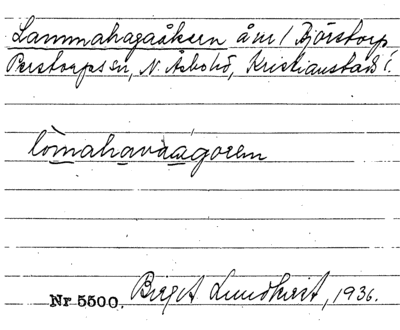 Lammahagaåkern åm 1 Björstorp
Perstorps sn, N. Åsbo hd, Kristianstads l.
Nr 5500. Birgit Lundkvist, 1936.